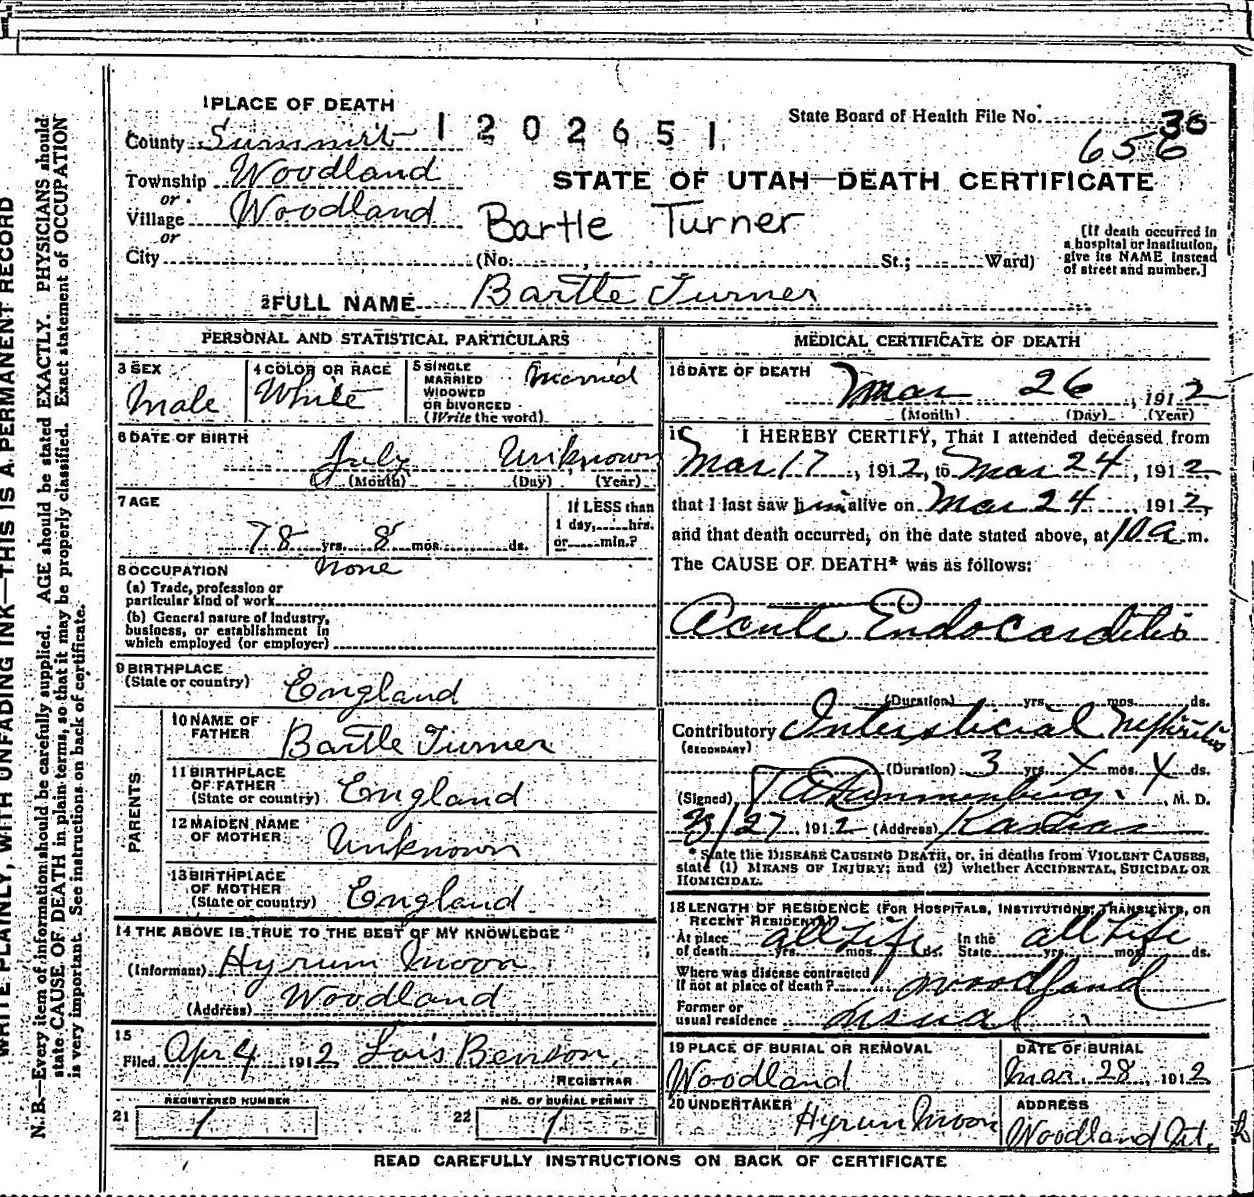 1 PLACE OF DEATH
County Summit
1202651
State Board of Health File No. 30
656
Township Woodland
or
Village Woodland
or
City
STATE OF UTAH—DEATH CERTIFICATE
Bartle Turner
(No. , St.; Ward)
[If death occurred in a hospital or institution, give its NAME instead of street and number.]
2 FULL NAME Bartle Turner
PERSONAL AND STATISTICAL PARTICULARS
3 SEX
Male
4 COLOR OR RACE
White
5 SINGLE
MARRIED
WIDOWED
OR DIVORCED
(Write the word)
Married
6 DATE OF BIRTH
July Unknown
(Month) (Day) (Year)
7 AGE
78 yrs. 8 mos. ds.
If LESS than
1 day, hrs.
or min.?
8 OCCUPATION none
(a) Trade, profession or
particular kind of work
(b) General nature of industry,
business, or establishment in
which employed (or employer)
9 BIRTHPLACE
(State or country) England
PARENTS
10 NAME OF
FATHER Bartle Turner
11 BIRTHPLACE
OF FATHER
(State or country) England
12 MAIDEN NAME
OF MOTHER Unknown
13 BIRTHPLACE
OF MOTHER
(State or country) England
14 THE ABOVE IS TRUE TO THE BEST OF MY KNOWLEDGE
(Informant) Hyrum Moon
(Address) Woodland
15
Filed Apr 4 1912 Lois Benson
REGISTRAR
21 REGISTERED NUMBER
1
22 NO. OF BURIAL PERMIT
1
MEDICAL CERTIFICATE OF DEATH
16 DATE OF DEATH
Mar 26, 1912
(Month) (Day) (Year)
I HEREBY CERTIFY, That I attended deceased from
Mar 17, 1912, to Mar 24, 1912
that I last saw him alive on Mar 24, 1912,
and that death occurred, on the date stated above, at 10 a m.
The CAUSE OF DEATH* was as follows:
Acute Endocarditis
(Duration) yrs. mos. ds.
Contributory Intersticial Nephritis
(SECONDARY)
(Duration) 3 yrs. X mos. X ds.
(Signed) , M. D.
3/27 1912 (Address) Kamas
* State the DISEASE CAUSING DEATH, or, in deaths from VIOLENT CAUSES,
state (1) MEANS OF INJURY; and (2) whether ACCIDENTAL, SUICIDAL OR
HOMICIDAL.
18 LENGTH OF RESIDENCE (FOR HOSPITALS, INSTITUTIONS, TRANSIENTS, OR
RECENT RESIDENTS)
At place
of death all Life yrs. mos. ds. In the
State all Life yrs. mos. ds.
Where was disease contracted
If not at place of death? Woodland
Former or
usual residence usual
19 PLACE OF BURIAL OR REMOVAL
Woodland
DATE OF BURIAL
Mar. 28 1912
20 UNDERTAKER
Hyrum Moon
ADDRESS
Woodland Ut.
READ CAREFULLY INSTRUCTIONS ON BACK OF CERTIFICATE
WRITE PLAINLY, WITH UNFADING INK—THIS IS A PERMANENT RECORD
N. B.—Every item of information should be carefully supplied. AGE should be stated EXACTLY. PHYSICIANS should
state CAUSE OF DEATH in plain terms, so that it may be properly classified. Exact statement of OCCUPATION
is very important. See instructions on back of certificate.